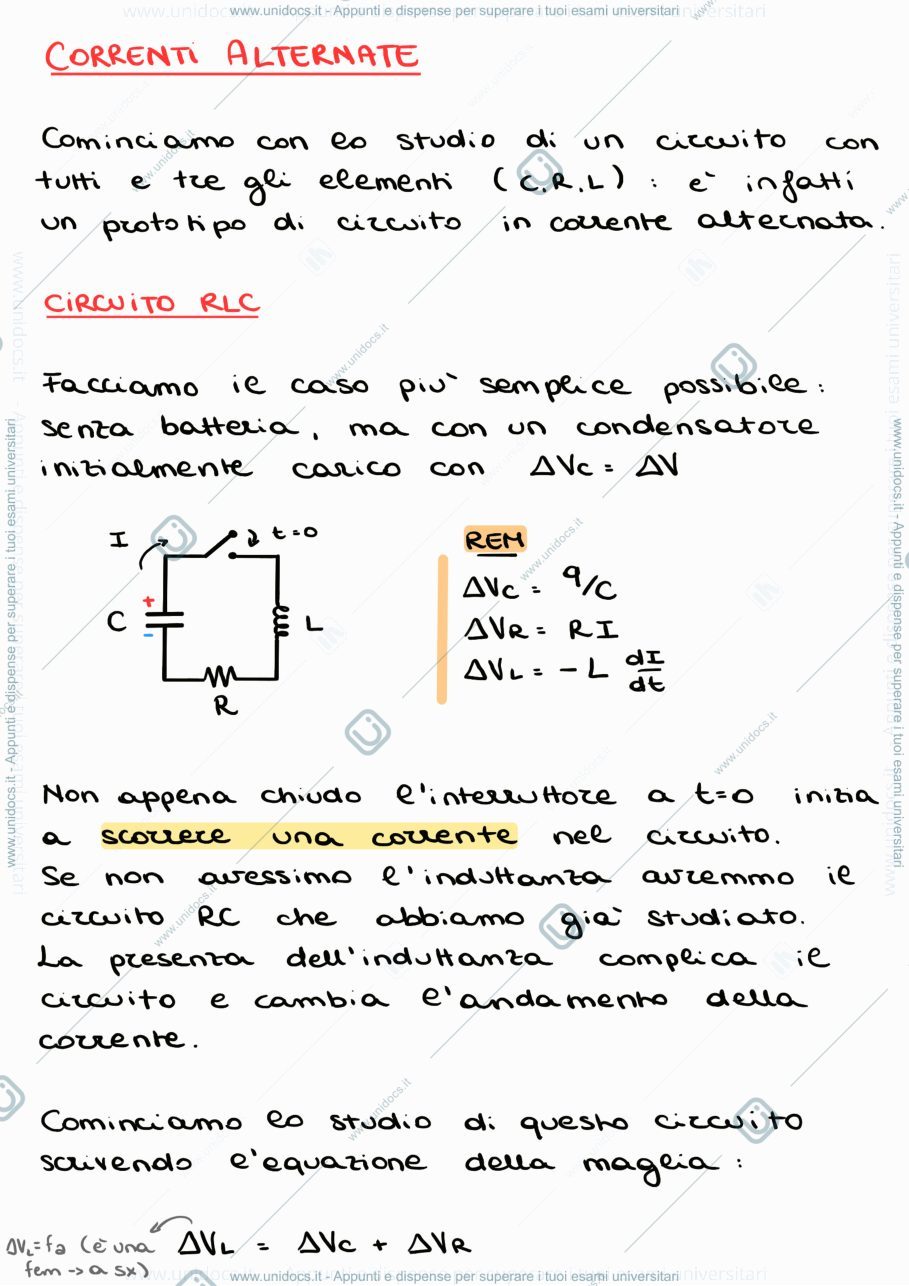 www.unidocs.it - Appunti e dispense per superare i tuoi esami universitari
CORRENTI ALTERNATE
Cominciamo con lo studio di un circuito con
tutti e tre gli elementi (C.R.L) : e' infatti
un prototipo di circuito in corrente alternata.
CIRCUITO RLC
Facciamo il caso piu' semplice possibile :
senza batteria, ma con un condensatore
inizialmente carico con ΔVc = ΔV
I
t=0
+
C
-
L
R
REM
ΔVc = q/C
ΔVR = RI
ΔVL = - L dI/dt
Non appena chiudo l'interruttore a t=0 inizia
a scorrere una corrente nel circuito.
Se non avessimo l'induttanza avremmo il
circuito RC che abbiamo gia' studiato.
La presenza dell'induttanza complica il
circuito e cambia l'andamento della
corrente.
Cominciamo lo studio di questo circuito
scrivendo l'equazione della maglia :
ΔVL = ΔVc + ΔVR
ΔVL = fa (è una
fem -> a sx)
www.unidocs.it - Appunti e dispense per superare i tuoi esami universitari
www.unidocs.it - Appunti e dispense per superare i tuoi esami universitari
www.unidocs.it - Appunti e dispense per superare i tuoi esami universitari